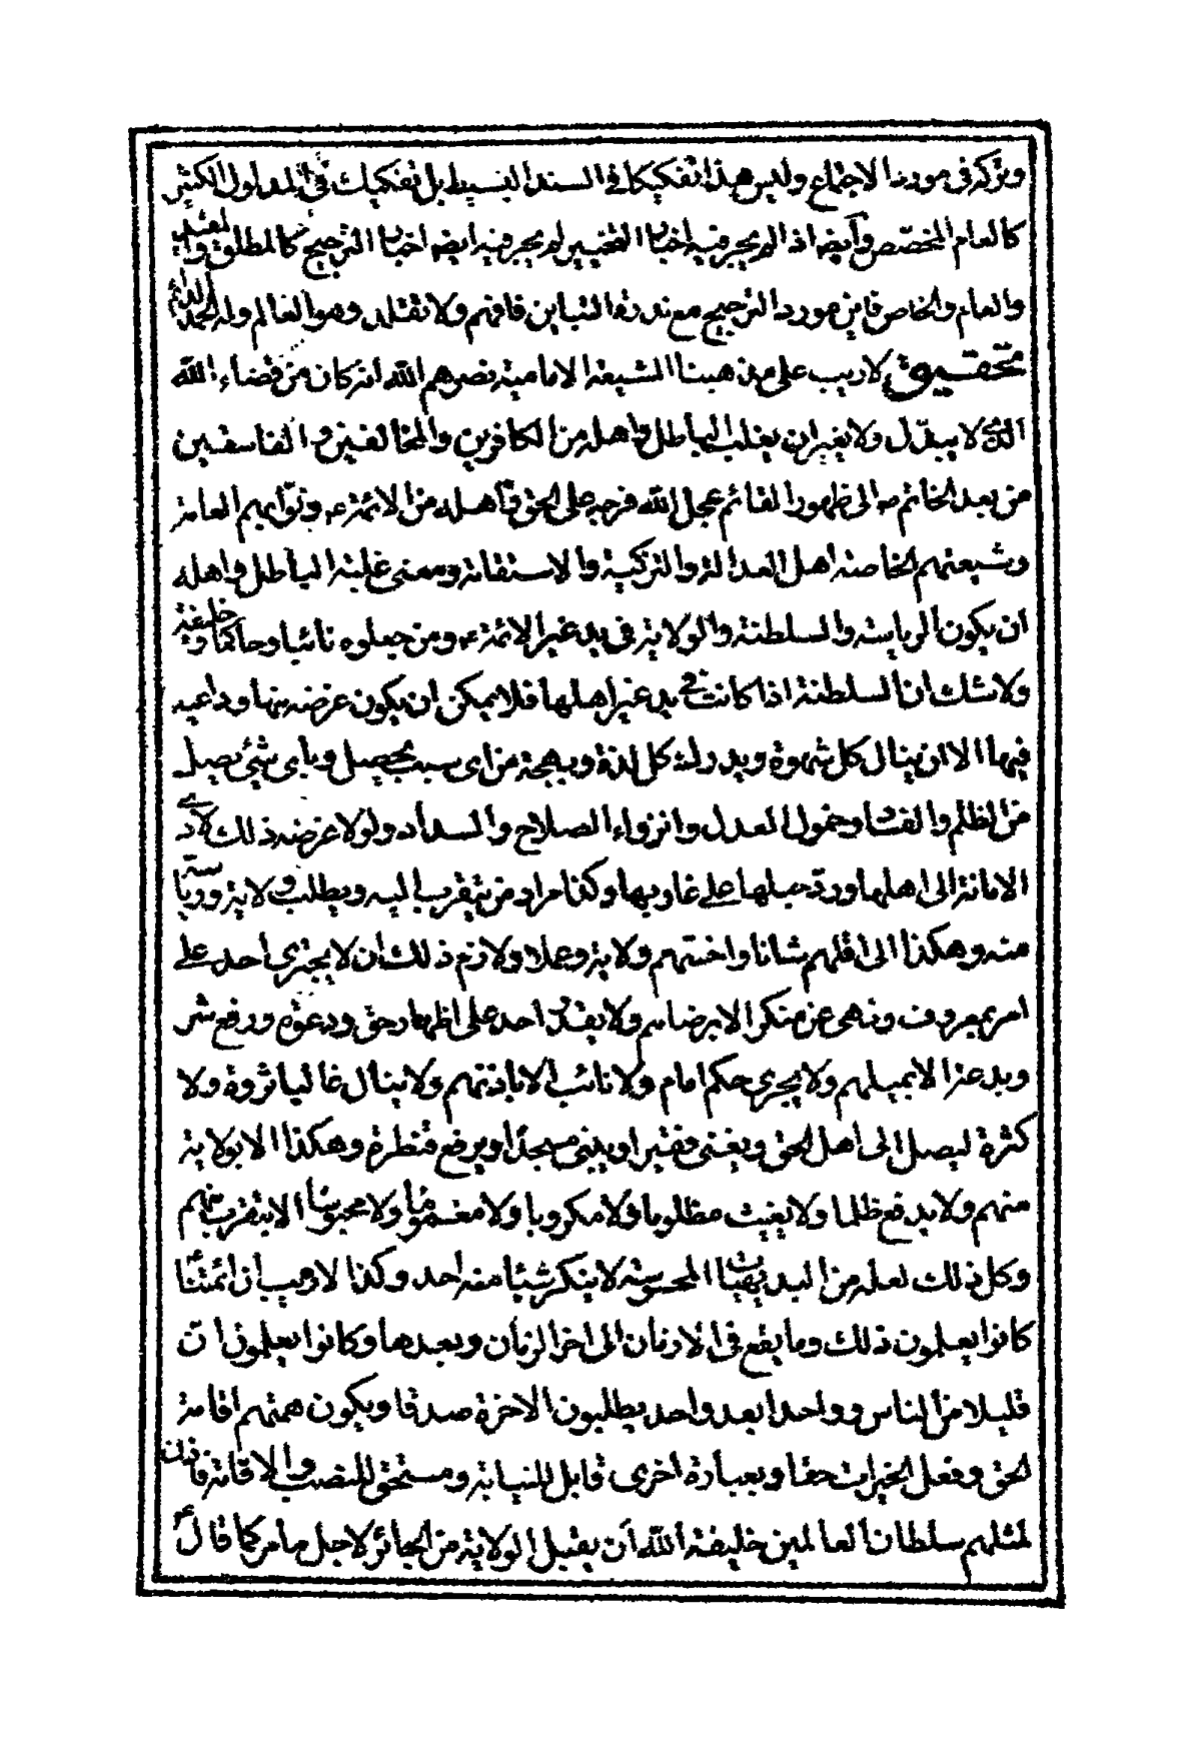 وتركه فى مورد الاجتماع وليس هذا تفكيكا فى السند البسيط بل تفكيك فى المدلول الكثير
كالعام المخصّص وايضه اذا لم يجر فيه اخبار التخيير لم يجر فيه ايضه اخبار الترجيح كالمطلق والمقيد
والعام والخاص فاين مورد الترجيح مع ندرة التباين فافهم ولا تقتلد وهو العالم وله الحمد الدائم
تحقيق لا ريب على مذهبنا الشيعة الامامية نصرهم الله انه كان من قضاء الله
الذى لا يبدّل ولا يغير ان يغلب الباطل واهله من الكافرين والمخالفين والفاسقين
من بعد الخاتم ص الى ظهور القائم عجل الله فرجه على الحق واهله من الائمة ع ونوّابهم العامة
وشيعتهم الخاصة اهل العدالة والتزكية والاستقامة ومعنى غلبة الباطل واهله
ان يكون الرياسة والسلطنة والولاية فى يد غير الائمة ع ومن جعلوه نائبا وحاكما وخليفة
ولا شك ان السلطنة اذا كانت فى يد غير اهلها فلا يمكن ان يكون غرضه منها وداعيه
فيها الا ان ينال كل شهوة ويدرك كل لذة وبهجة من اى سبب يحصل وباى شئ يصل
من الظلم والفساد وخمول العدل وانزواء الصلاح والسداد ولولا غرضه ذلك لادى
الامانة الى اهلها وردّ حبلها على غاربها وكذا مراد من يتقرب اليه ويطلب ولاية ورياسة
منه وهكذا الى اقلهم شانا واخستهم ولاية وعملا ولازم ذلك ان لا يجترى احد على
امر بمعروف ونهى عن منكر الا برضاهم ولا يقدر احد على اظهار حق ودعوة ورفع شر
وبدعة الا بميلهم ولا يجرى حكم امام ولا نائب الا باذنهم ولا ينال غالبا ثروة ولا
كثرة ليصل الى اهل الحق ويغنى فقيرا ويبنى مسجدا ويرفع قنطرة وهكذا الا بولاية
منهم ولا يدفع ظلما ولا يغيث مظلوما ولا مكروبا ولا مغموما ولا محبوسا الا بتقرب منهم
وكل ذلك لعله من البديهيات المحسوسة لا ينكر شيئا منه احد وكذا لا ريب ان ائمتنا
كانوا يعلمون ذلك وما يقع فى الازمان الى اخر الزمان وبعدها وكانوا يعلمون ان
قليلا من الناس وواحدا بعد واحد يطلبون الاخرة صدقا ويكون همتهم اقامة
الحق وفعل الخيرات حقا وبعبارة اخرى قابل للنيابة ومستحق للمنصب والاقامة فاذن
لمثلهم سلطان العالمين خليفة الله ان يقبل الولاية من الجائر لاجل ما مر كما قال ع